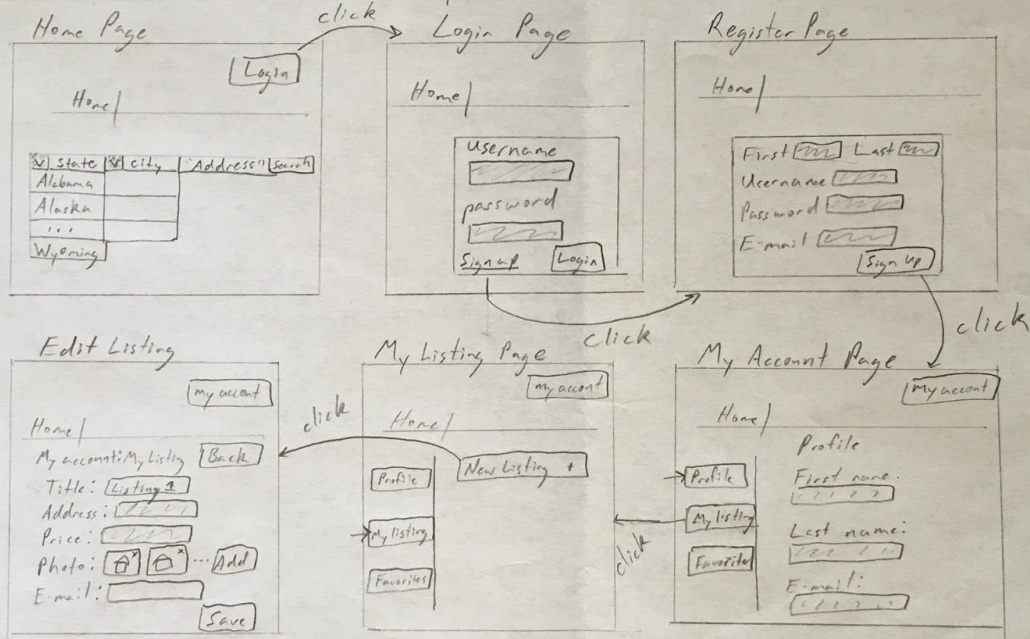 Home Page
click
Login
Home/
v State v City "Address" Search
Alabama
Alaska
...
Wyoming
Login Page
Home/
Username
password
Sign up Login
click
Register Page
Home/
First Last
Username
Password
E-mail
Sign Up
click
Edit Listing
my accont
Home/
My account: My Listing Back
Title: Listing 1
Address:
Price:
Photo: x x ... Add
E-mail:
Save
click
My Listing Page
my accont
Home/
New Listing +
Profile
My listing
Favorites
click
My Account Page
My account
Home/
Profile
Profile
First name:
My listing
Last name:
Favorites
E-mail: